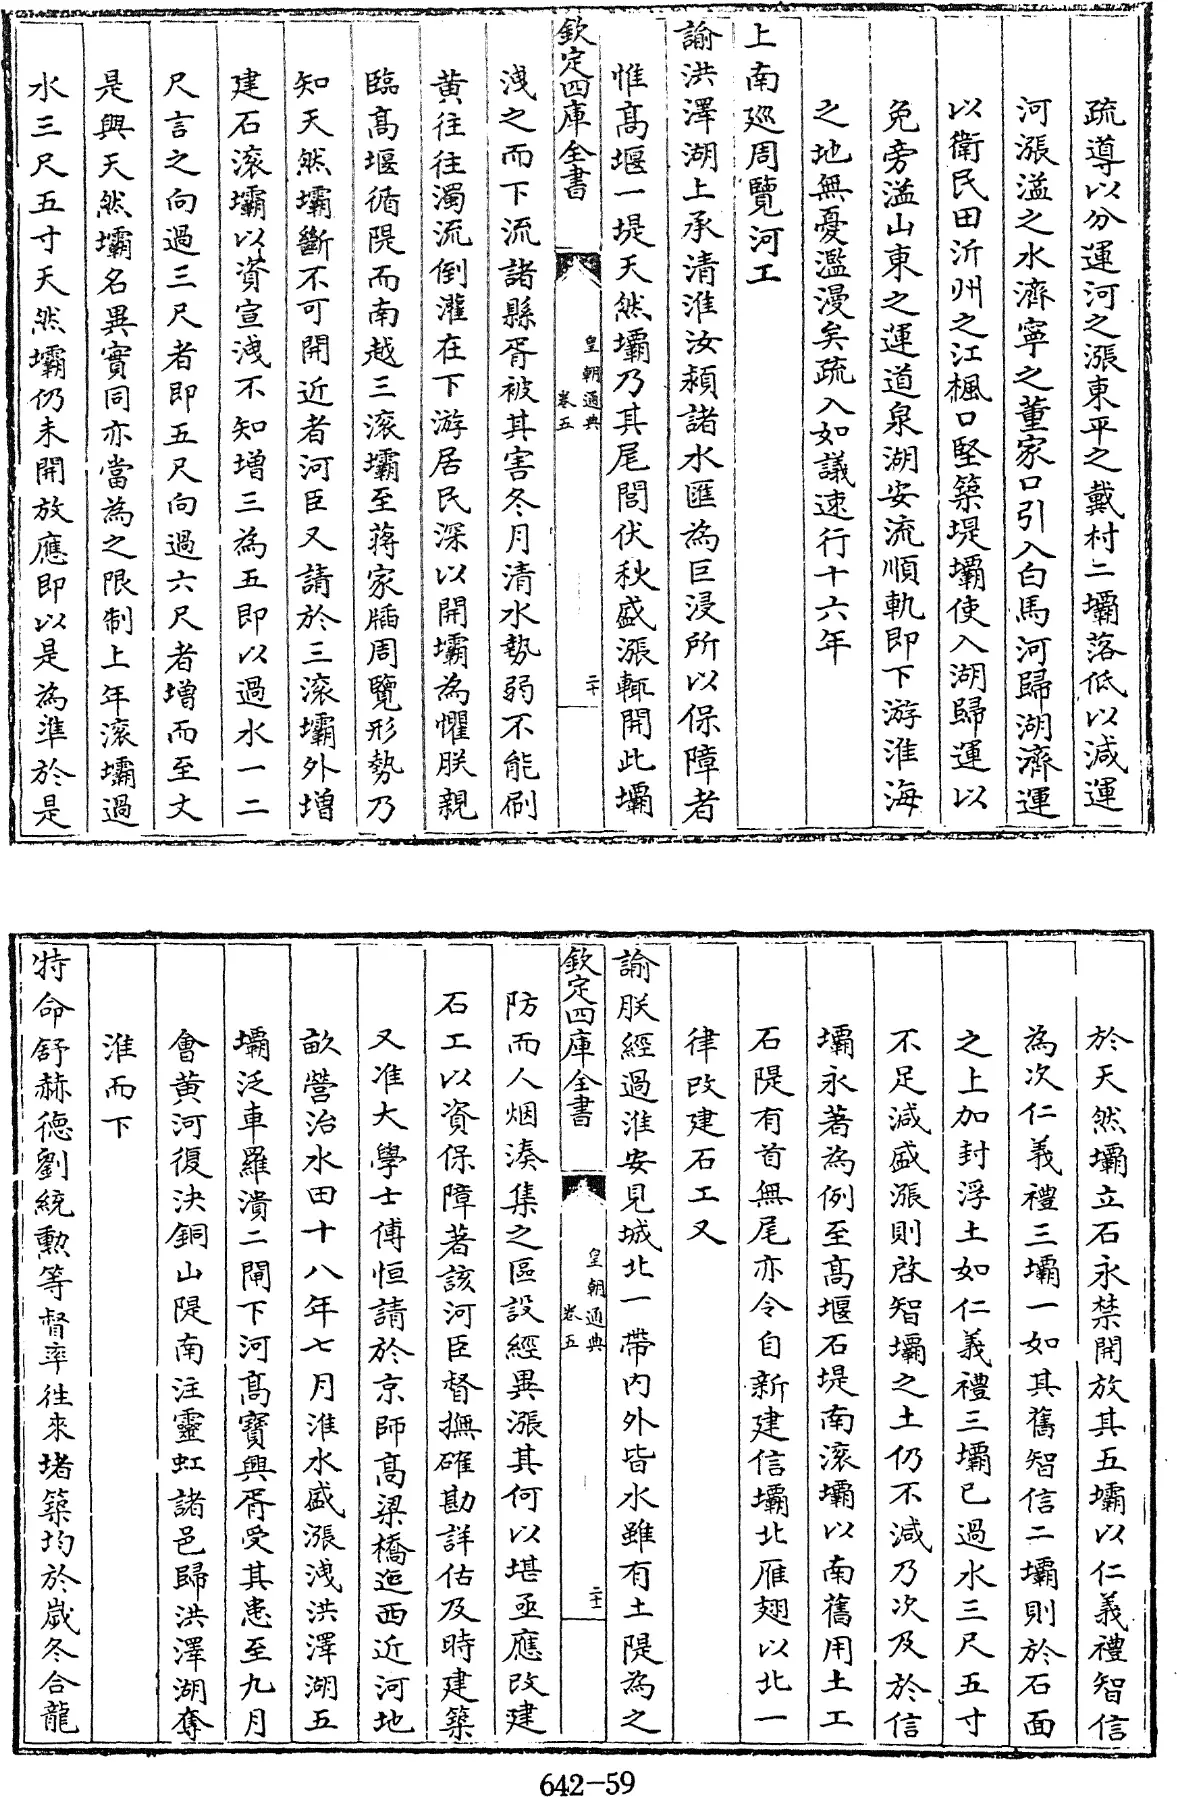 疏導以分運河之漲東平之戴村二壩落低以減運
河漲溢之水濟寧之董家口引入白馬河歸湖濟運
以衛民田沂州之江楓口堅築堤壩使入湖歸運以
免旁溢山東之運道泉湖安流順軌即下游淮海
之地無憂濫漫矣疏入如議速行十六年
上南廵周覽河工
諭洪澤湖上承清淮汝潁諸水匯為巨浸所以保障者
惟髙堰一堤天然壩乃其尾閭伏秋盛漲輒開此壩
欽定四庫全書
皇朝通典
卷五
二十
洩之而下流諸縣胥被其害冬月清水勢弱不能刷
黄往往濁流倒灌在下游居民深以開壩為懼朕親
臨髙堰循隄而南越三滾壩至蔣家牐周覽形勢乃
知天然壩斷不可開近者河臣又請於三滾壩外增
建石滾壩以資宣洩不知增三為五即以過水一二
尺言之向過三尺者即五尺向過六尺者增而至丈
是與天然壩名異實同亦當為之限制上年滾壩過
水三尺五寸天然壩仍未開放應即以是為準於是
於天然壩立石永禁開放其五壩以仁義禮智信
為次仁義禮三壩一如其舊智信二壩則於石面
之上加封浮土如仁義禮三壩已過水三尺五寸
不足減盛漲則啓智壩之土仍不減乃次及於信
壩永著為例至髙堰石堤南滾壩以南舊用土工
石隄有首無尾亦令自新建信壩北雁翅以北一
律改建石工又
諭朕經過淮安見城北一帶内外皆水雖有土隄為之
欽定四庫全書
皇朝通典
卷五
二十一
防而人烟湊集之區設經異漲其何以堪亟應改建
石工以資保障著該河臣督撫確勘詳估及時建築
又准大學士傅恒請於京師髙梁橋迤西近河地
畝營治水田十八年七月淮水盛漲洩洪澤湖五
壩泛車羅潰二閘下河髙寶興胥受其患至九月
會黄河復決銅山隄南注靈虹諸邑歸洪澤湖奪
淮而下
特命舒赫德劉統勲等督率徃来堵築均於歲冬合龍
642-59